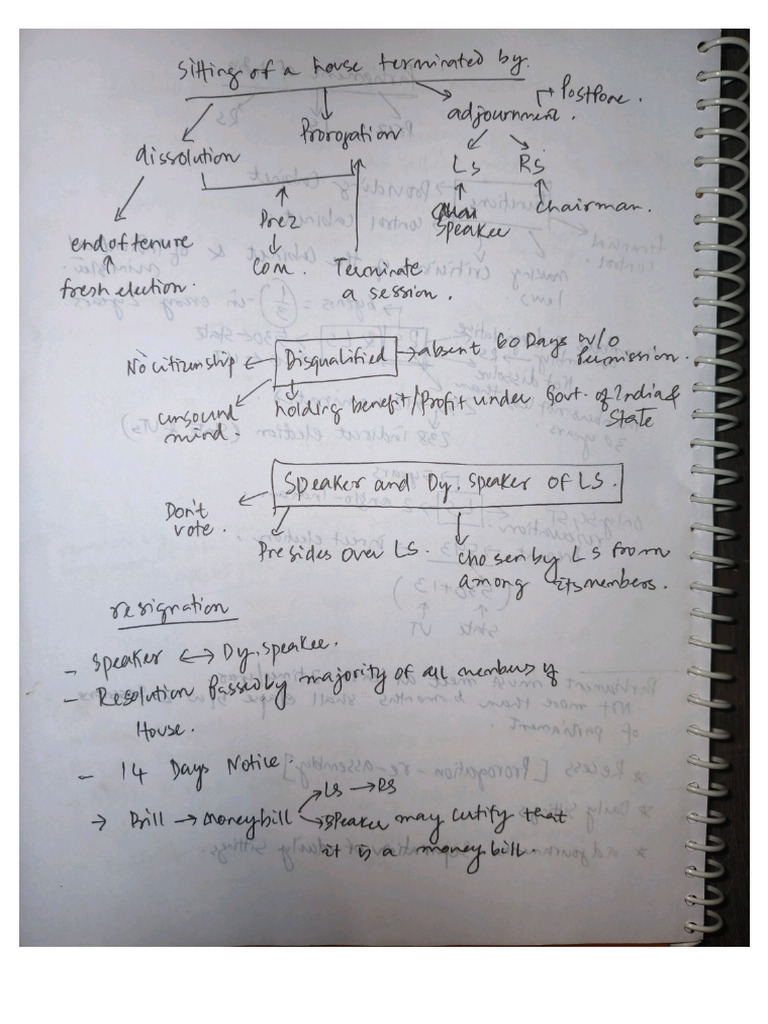 Sitting of a house terminated by
Postpone.
adjournment.
Prorogation
dissolution
LS RS
Speaker
Chairman.
Prez
Com.
end of tenure
fresh election.
Terminate
a session.
No citizenship
Disqualified
absent 60 Days w/o
Permission.
unsound
mind.
holding benefit/Profit under Govt. of India &
State
Speaker and Dy. Speaker of LS.
Don't
vote.
Presides over LS.
chosen by LS from
among its members.
resignation
- Speaker ↔ Dy. Speaker.
- Resolution Passed by majority of all members of
House.
- 14 Days Notice.
LS → RS
→ Bill → money bill
Speaker may certify that
it is a money bill.